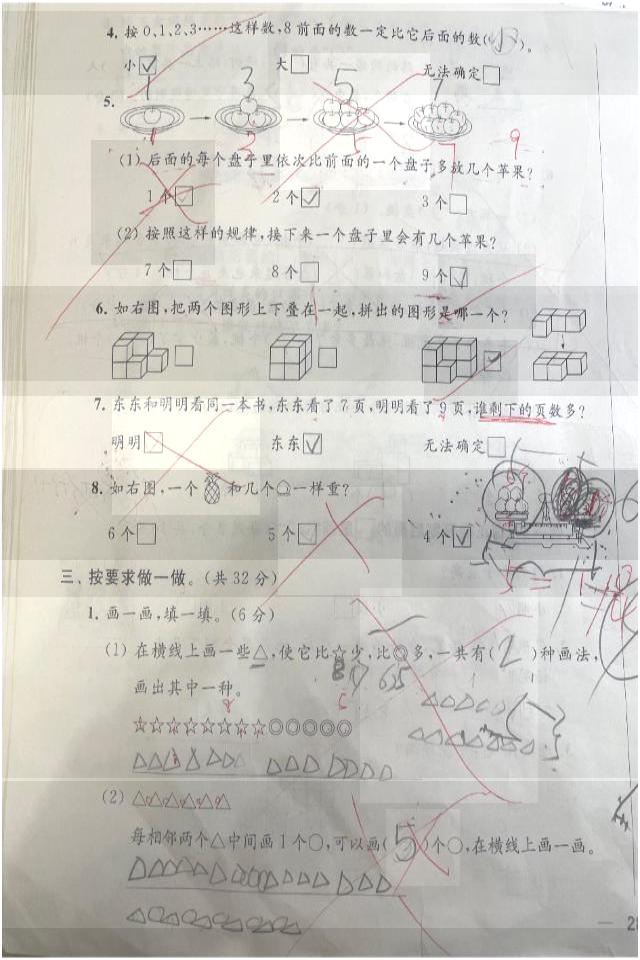 4. 按0,1,2,3……这样数,8前面的数一定比它后面的数(小)。
小☑ 大□ 无法确定□
5.
1 3 5 7
9
(1) 后面的每个盘子里依次比前面的一个盘子多放几个苹果?
1个☑ 2个☑ 3个□
(2) 按照这样的规律,接下来一个盘子里会有几个苹果?
7个□ 8个□ 9个☑
6. 如右图,把两个图形上下叠在一起,拼出的图形是哪一个?
7. 东东和明明看同一本书,东东看了7页,明明看了9页,谁剩下的页数多?
明明□ 东东☑ 无法确定□
8. 如右图,一个 和几个 一样重?
6个□ 5个☑ 4个☑
三、按要求做一做。(共32分)
1. 画一画,填一填。(6分)
(1) 在横线上画一些△,使它比☆少,比◎多,一共有(2)种画法,
画出其中一种。
☆☆☆☆☆☆☆☆◎◎◎◎◎
(2) △△△△△△
每相邻两个△中间画1个○,可以画(5)个○,在横线上画一画。
— 28